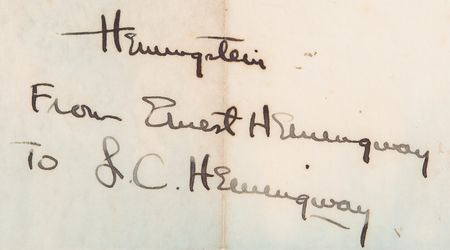 Hemingstein
From Ernest Hemingway
To L.C. Hemingway